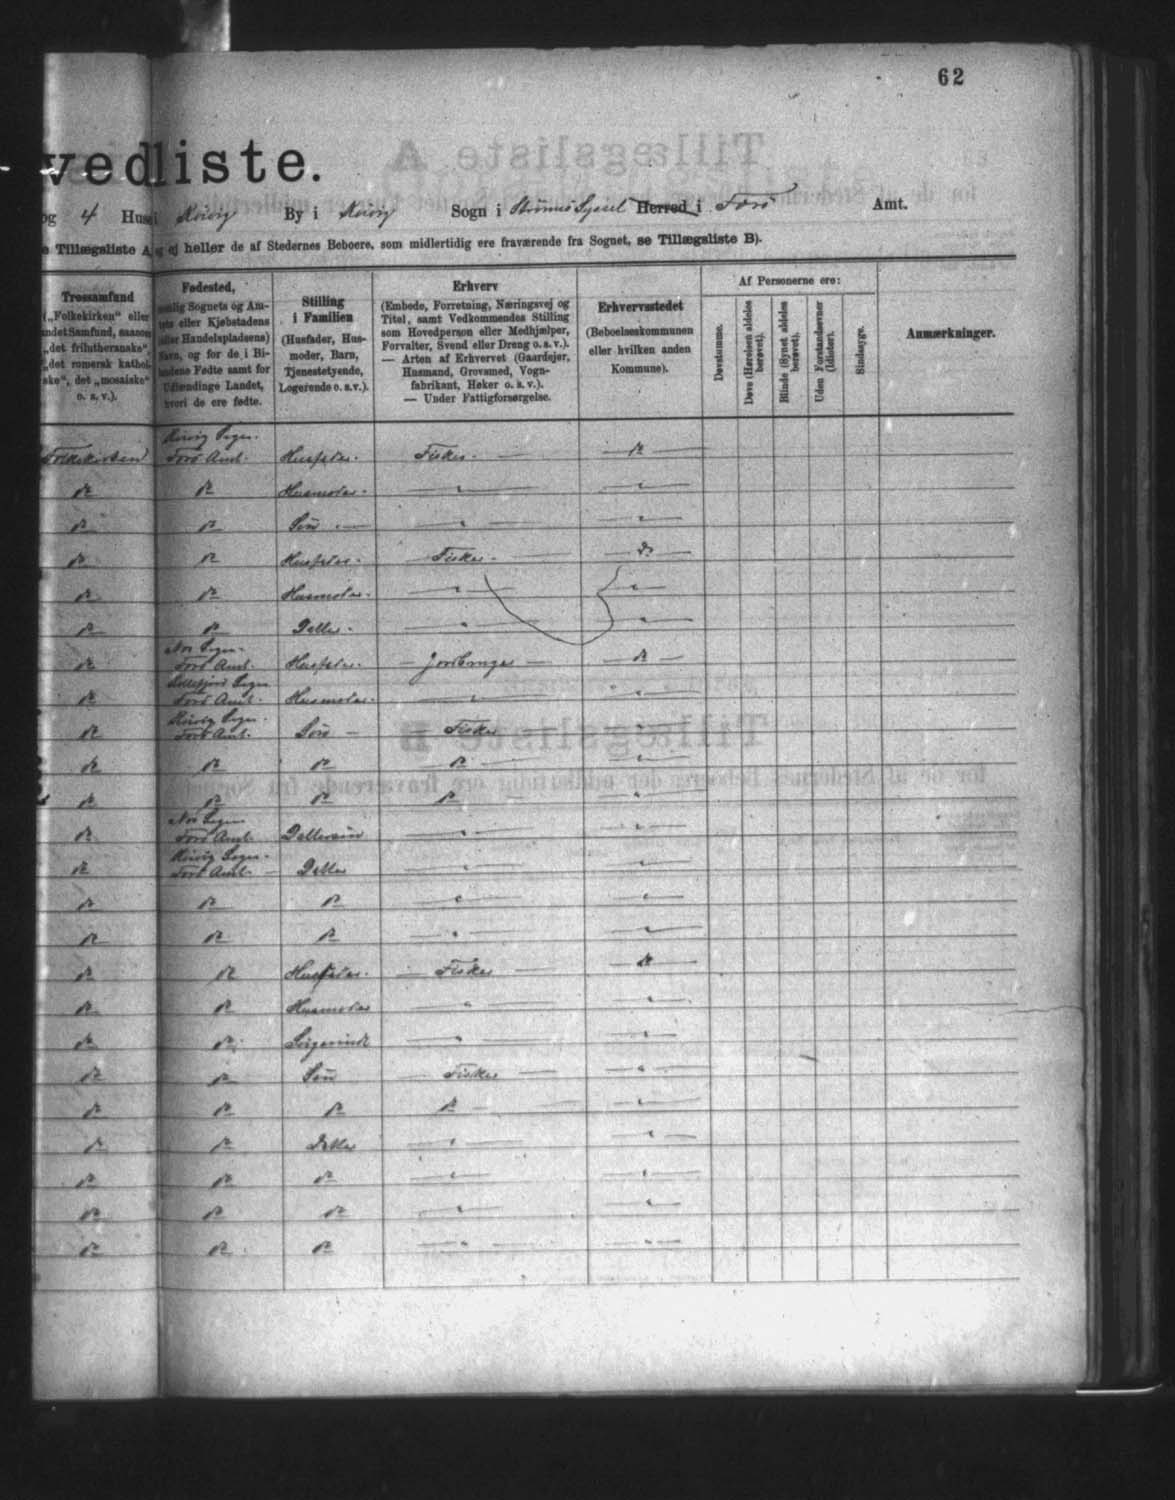 62
vedliste.
og 4 Huse i Kvivig By i Kvivig Sogn i Strømø Syssel Herred i Færø Amt.
e Tillægsliste A, og ej heller de af Stedernes Beboere, som midlertidig ere fraværende fra Sognet, se Tillægsliste B).
Trossamfund
(„Folkekirken“ eller
andet Samfund, saasom
„det frilutheranske“,
„det romersk kathol-
ske“, det „mosaiske“
o. s. v.).
Fødested,
nemlig Sognets og Am-
tets eller Kjøbstadens
(eller Handelspladsens)
Navn, og for de i Bi-
landene Fødte samt for
Udlændinge Landet,
hvori de ere fødte.
Stilling
i Familien
(Husfader, Hus-
moder, Barn,
Tjenestetyende,
Logerende o. s. v.).
Erhverv
(Embede, Forretning, Næringsvej og
Titel, samt Vedkommendes Stilling
som Hovedperson eller Medhjælper,
Forvalter, Svend eller Dreng o. s. v.).
— Arten af Erhvervet (Gaardejer,
Husmand, Grovsmed, Vogn-
fabrikant, Høker o. s. v.).
— Under Fattigforsørgelse.
Erhvervsstedet
(Beboelseskommunen
eller hvilken anden
Kommune).
Af Personerne ere:
Døvstumme.
Døve (Hørelsen aldeles
berøvet).
Blinde (Synet aldeles
berøvet).
Uden Forstandsevner
(Idioter).
Sindssyge.
Anmærkninger.
Kvivig Sogn.
Folkekirken Færø Amt. Husfader. Fisker. — do —
do do Husmoder. — " — — " —
do do Søn — — " — — " —
do do Husfader. Fisker. — do —
do do Husmoder. — " — — " —
do do Datter. — " — — " —
Nes Sogn.
do Færø Amt. Husfader. — Jordbruger — — do —
Kollefjord Sogn
do Færø Amt. Husmoder. — " — — " —
Kvivig Sogn.
do Færø Amt. Søn — Fisker — " —
do do do do — — " —
do do do do — — " —
Nes Sogn
do Færø Amt. Dattersøn — " — — " —
Kvivig Sogn.
do Færø Amt. Datter — " — — " —
do do do — " — — " —
do do do — " — — " —
do do Husfader. — Fisker — do —
do do Husmoder — " — — " —
do do Svigerinde — " — — " —
do do Søn Fisker — — " —
do do do do — — " —
do do Datter — " — — " —
do do do — " — — " —
do do do — " — — " —
do do do — " — — " —